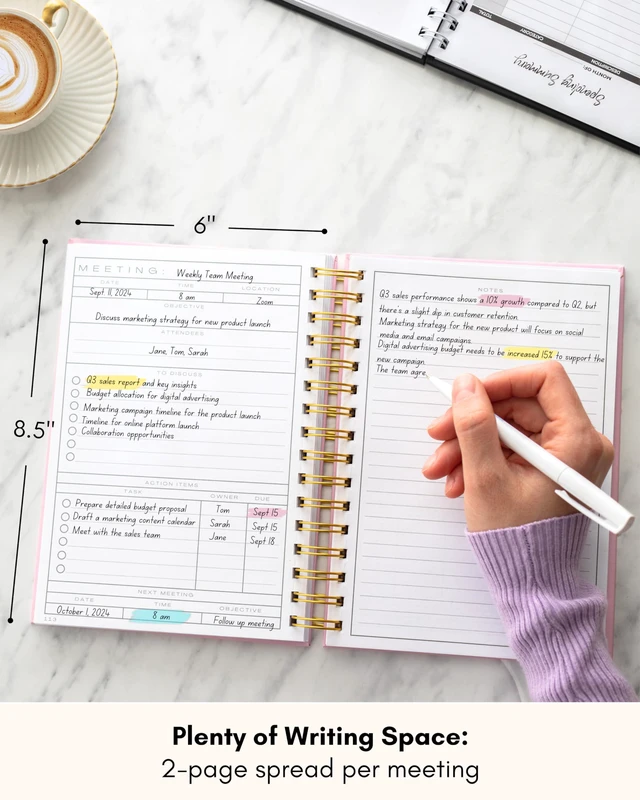 TOTAL
CATEGORY
DESCRIPTION
MONTH OF:
Spending Summary
6"
8.5"
MEETING: Weekly Team Meeting
DATE TIME LOCATION
Sept 11, 2024 8 am Zoom
OBJECTIVE
Discuss marketing strategy for new product launch
ATTENDEES
Jane, Tom, Sarah
TO DISCUSS
Q3 sales report and key insights
Budget allocation for digital advertising
Marketing campaign timeline for the product launch
Timeline for online platform launch
Collaboration oppportunities
ACTION ITEMS
TASK OWNER DUE
Prepare detailed budget proposal Tom Sept 15
Draft a marketing content calendar Sarah Sept 15
Meet with the sales team Jane Sept 18
NEXT MEETING
DATE TIME OBJECTIVE
October 1, 2024 8 am Follow up meeting
NOTES
Q3 sales performance shows a 10% growth compared to Q2, but
there's a slight dip in customer retention.
Marketing strategy for the new product will focus on social
media and email campaigns.
Digital advertising budget needs to be increased 15% to support the
new campaign.
The team agre
Plenty of Writing Space:
2-page spread per meeting